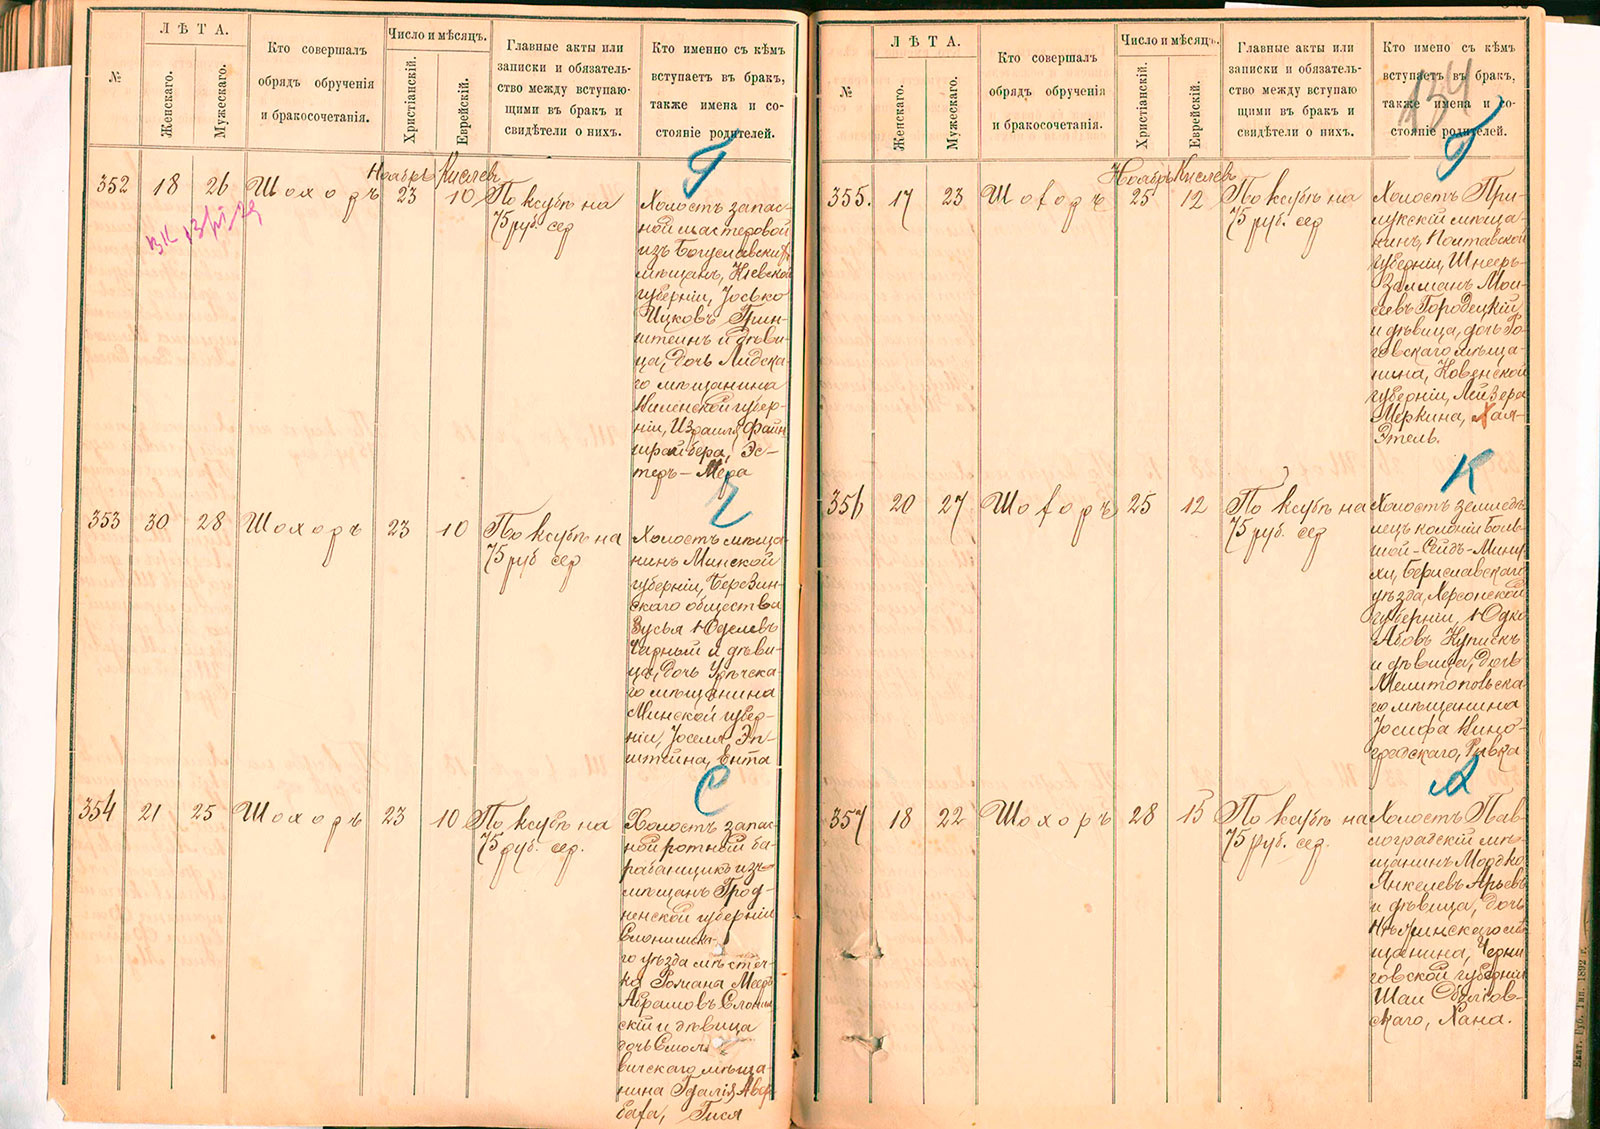 №
ЛѢТА.
Женскаго.
Мужескаго.
Кто совершалъ
обрядъ обрученія
и бракосочетанія.
Число и мѣсяцъ.
Христіанскій.
Еврейскій.
Главные акты или
записки и обязатель-
ство между вступаю-
щими въ бракъ и
свидѣтели о нихъ.
Кто именно съ кѣмъ
вступаетъ въ бракъ,
также имена и со-
стояніе родителей.
Г
Ноябрь Кислевъ
352 18 26 Шохоръ 23 10 По ксубѣ на
75 руб. сер
Холостъ запас-
ной мастеровой
изъ Богуславскихъ
мѣщанъ, Кіевской
губерніи, Іосько
Ицковъ Грин-
штейнъ и дѣви-
ца, дочь Лидска-
го мѣщанина
Виленской губер-
ніи, Израиля Файн
шрайбера, Эс-
теръ-Мера
Ч
353 30 28 Шохоръ 23 10 По ксубѣ на
75 руб сер
Холостъ мѣща
нинъ Минской
губерніи, Березин-
скаго общества
Зусья Юделевъ
Чарный и дѣви-
ца, дочь Узлѣчска-
го мѣщанина
Минской губер-
ніи, Іоселя Эп-
штейна, Ента
С
354 21 25 Шохоръ 23 10 По ксубѣ на
75 руб. сер.
Холостъ запас-
ной ротный ба-
рабанщикъ изъ
мѣщанъ Грод-
ненской губерніи
Слонимска-
го уѣзда мѣстеч-
ка Романа Мееръ
Абрамовъ Слоним
скій и дѣвица
дочь Смол
вичскаго мѣща-
нина Гдалія Авер
баха, Гися
№
ЛѢТА.
Женскаго.
Мужескаго.
Кто совершалъ
обрядъ обрученія
и бракосочетанія.
Число и мѣсяцъ.
Христіанскій.
Еврейскій.
Главные акты или
записки и обязатель-
ство между вступаю
щими въ бракъ и
свидѣтели о нихъ.
Кто имено съ кѣмъ
вступаетъ въ бракъ,
также имена и со-
стояніе родителей.
154
Г
Ноябрь Кислевъ
355. 17 23 Шохоръ 25 12 По ксубѣ на
75 руб. сер
Холостъ При-
лукскій мѣща-
нинъ, Полтавской
губерніи, Шнееръ-
Залманъ Мои-
сеевъ Городецкій
и дѣвица, дочь Ро-
говскаго мѣща-
нина, Ковенской
губерніи, Лейзера
Меркина, Хая-
Этель.
К
356 20 27 Шохоръ 25 12 По ксубѣ на
75 руб. сер
Холостъ земледѣ
лецъ колоніи Боль-
шой-Сейдъ-Мину-
хи, Бериславскаго
уѣзда, Херсонской
губерніи, Юдко
Абовъ Купискъ
и дѣвица, дочь
Мелитопольска-
го мѣщанина
Іосифа Вино-
градскаго, Рывка
А
357 18 22 Шохоръ 28 15 По ксубѣ на
75 руб. сер.
Холостъ Пав-
лоградскій мѣ-
щанинъ Мордко
Янкелевъ Арьевъ
и дѣвица, дочь
Нѣжинскаго мѣ
щанина, Черни
говской губерніи
Шаи
скаго, Хана.
Екат. Губ. Тип. 1892 г.